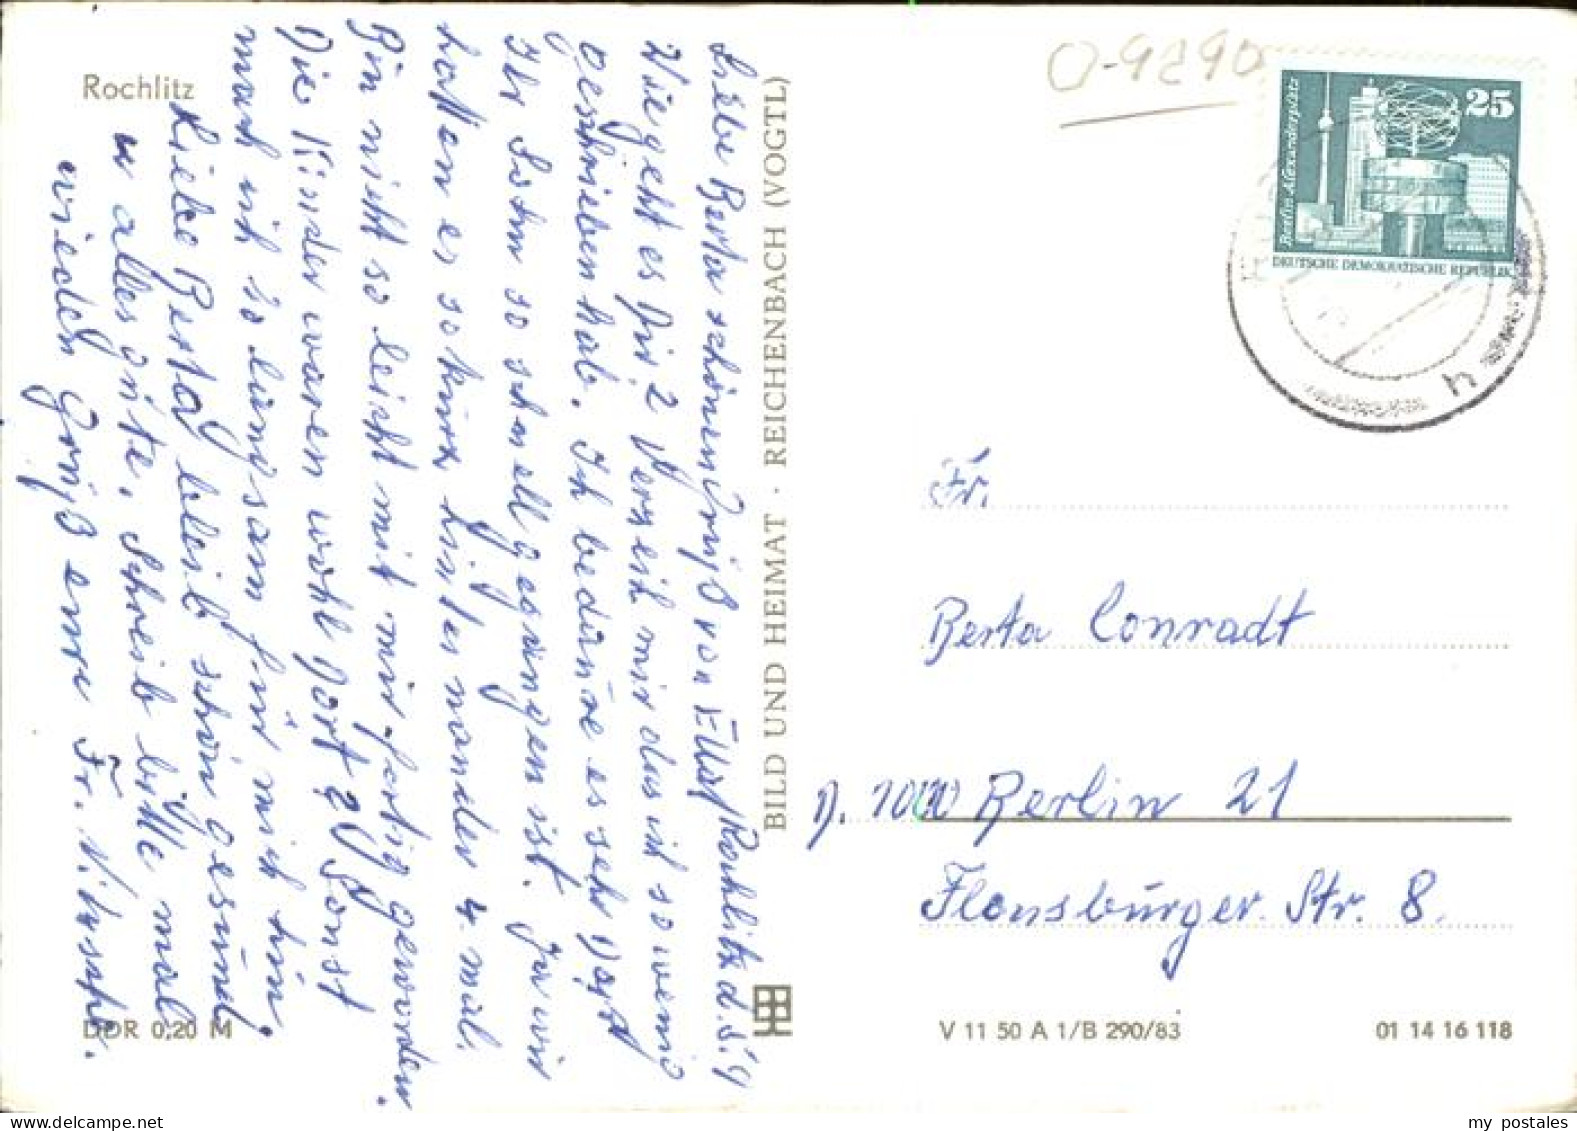 Rochlitz
Liebe Berta schönen Gruß von Ella / Rochlitz d. 5.4
Wie geht es Dir? Verzeih mir das ich so wenig
geschrieben hab. Ich bedaure es sehr Dorst
Ihr Sohn so schnell gegangen ist. Ja wir
hatten es so kurz hintereinander 4 mal.
Bin nicht so leicht mit mir fertig geworden.
Die Kinder waren wohl dort? Sonst
mach ich so langsam für mich hin.
Liebe Berta bleib schön gesund
u alles gute. Schreib bitte mal
wieder Gruß eure Fr. Nitzsche.
DDR 0,20 M
BILD UND HEIMAT · REICHENBACH (VOGTL)
O-9290
25
Berlin, Alexanderplatz
DEUTSCHE DEMOKRATISCHE REPUBLIK
h
Fr.
Berta Conradt
D. 1000 Berlin 21
Flensburger Str. 8.
V 11 50 A 1/B 290/83
01 14 16 118
my postales